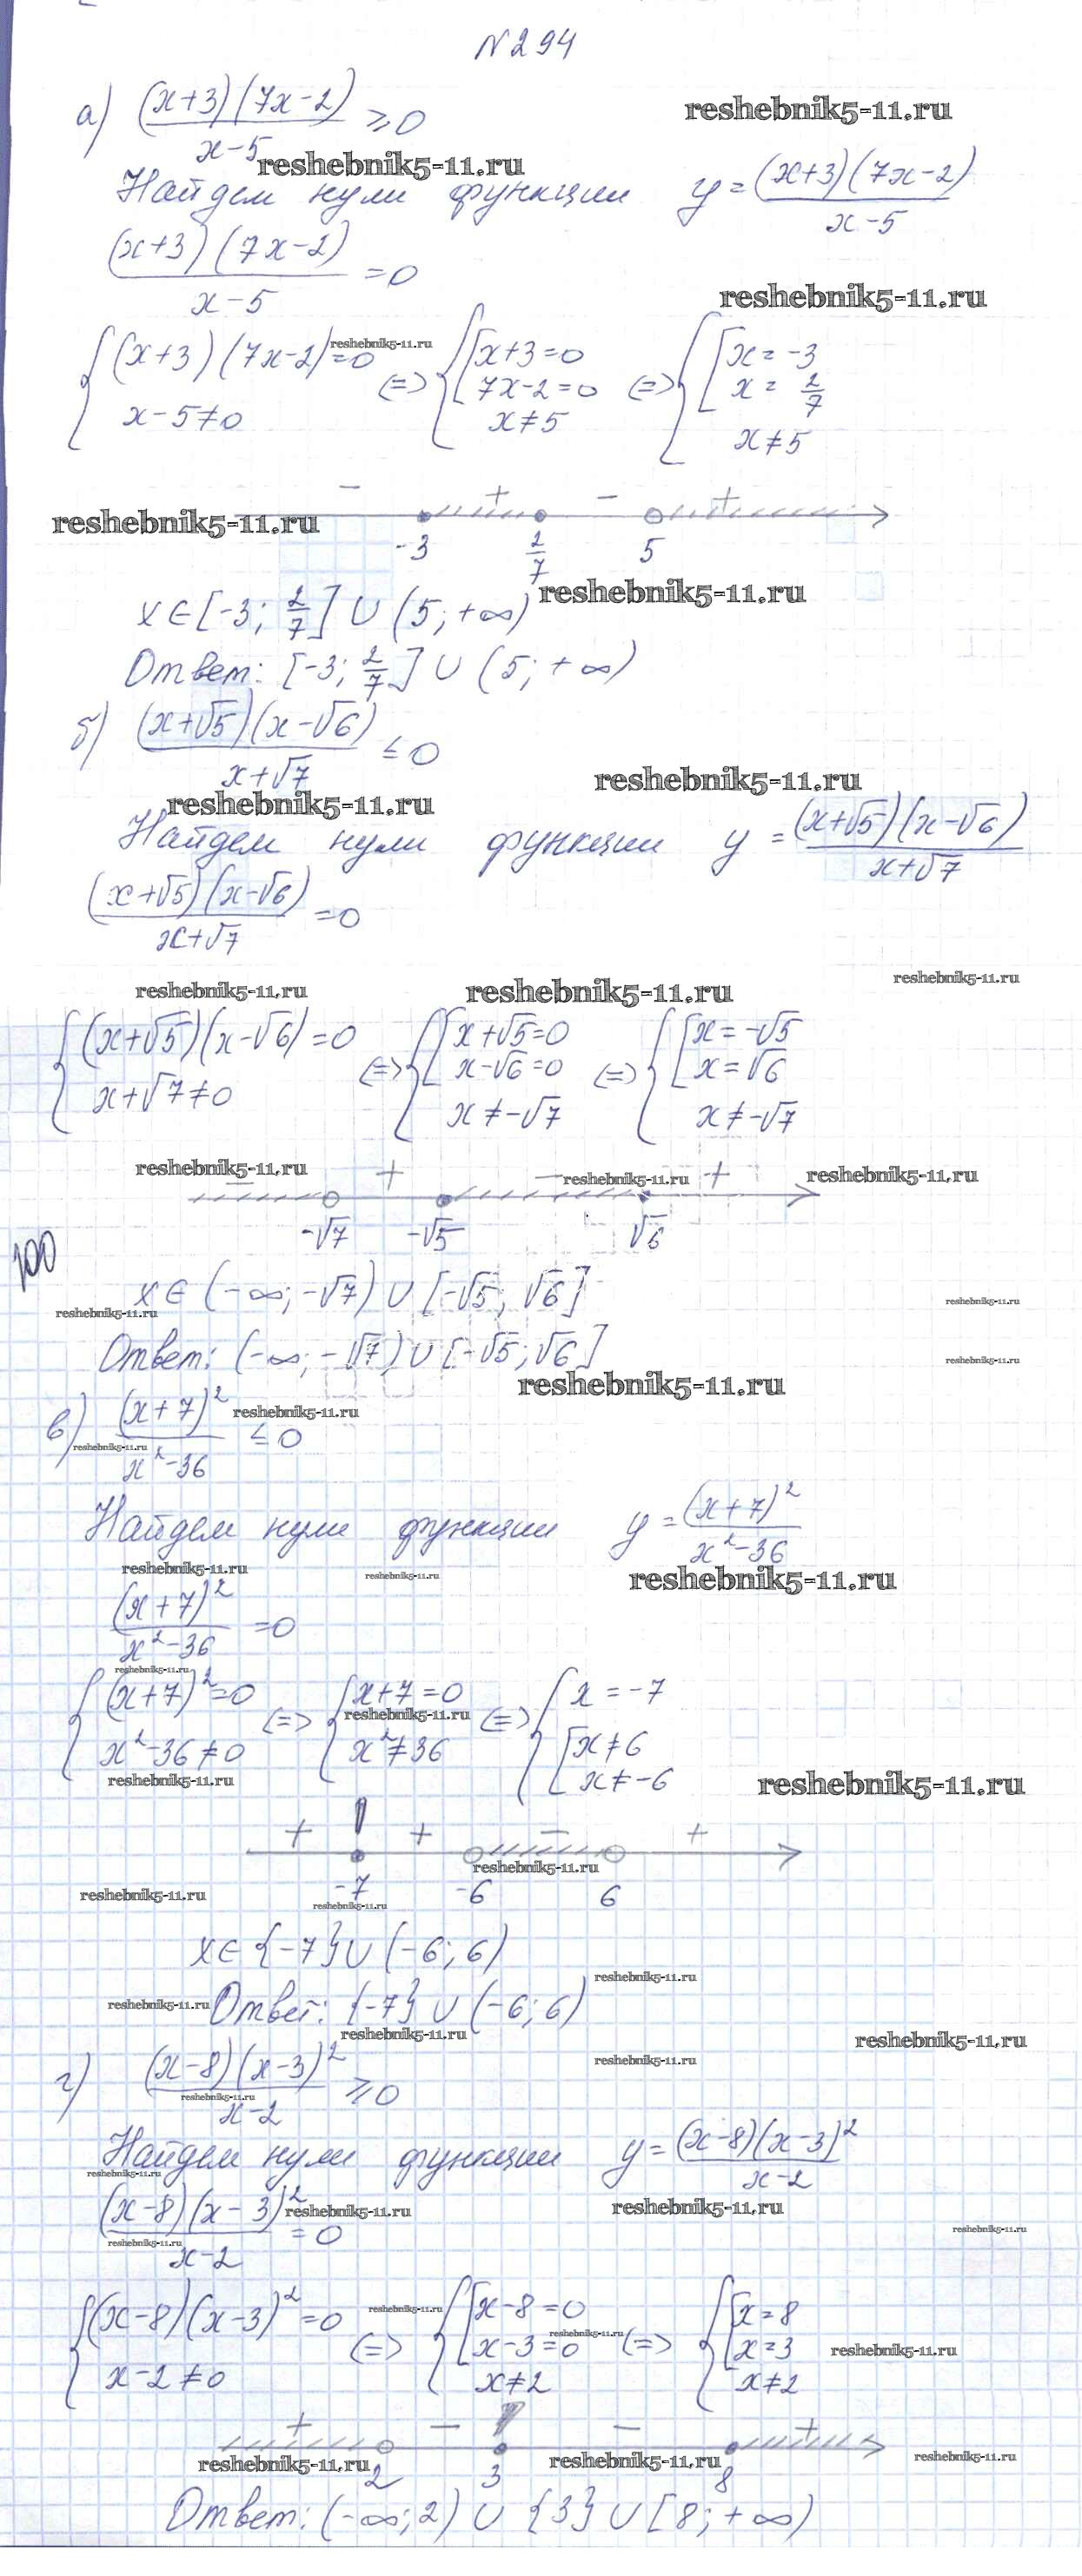 N 294
а) (x+3)(7x-2)/(x-5) ≥ 0
reshebnik5-11.ru
reshebnik5-11.ru
Найдем нули функции y = (x+3)(7x-2)/(x-5)
(x+3)(7x-2)/(x-5) = 0
reshebnik5-11.ru
{ (x+3)(7x-2)=0; x-5≠0 (=) { [ x+3=0; 7x-2=0; x≠5 (=) { [ x=-3; x=2/7; x≠5
reshebnik5-11.ru
- + - +
reshebnik5-11.ru
-3 2/7 5
reshebnik5-11.ru
x∈[-3; 2/7] ∪ (5; +∞)
Ответ: [-3; 2/7] ∪ (5; +∞)
б) (x+√5)(x-√6)/(x+√7) ≤ 0
reshebnik5-11.ru
reshebnik5-11.ru
Найдем нули функции y = (x+√5)(x-√6)/(x+√7)
(x+√5)(x-√6)/(x+√7) = 0
reshebnik5-11.ru reshebnik5-11.ru reshebnik5-11.ru
{ (x+√5)(x-√6)=0; x+√7≠0 (=) { [ x+√5=0; x-√6=0; x≠-√7 (=) { [ x=-√5; x=√6; x≠-√7
reshebnik5-11.ru reshebnik5-11.ru reshebnik5-11.ru
- + - +
-√7 -√5 √6
100
x∈(-∞; -√7) ∪ [-√5; √6]
reshebnik5-11.ru reshebnik5-11.ru
Ответ: (-∞; -√7) ∪ [-√5; √6]
reshebnik5-11.ru
reshebnik5-11.ru
в) (x+7)²/(x²-36) ≤ 0
reshebnik5-11.ru
reshebnik5-11.ru
Найдем нули функции y = (x+7)²/(x²-36)
reshebnik5-11.ru reshebnik5-11.ru reshebnik5-11.ru
(x+7)²/(x²-36) = 0
reshebnik5-11.ru
{ (x+7)²=0; x²-36≠0 (=) { x+7=0; x²≠36 (=) { x=-7; [ x≠6; x≠-6
reshebnik5-11.ru
reshebnik5-11.ru reshebnik5-11.ru
+ + - +
reshebnik5-11.ru
-7 -6 6
reshebnik5-11.ru reshebnik5-11.ru
x∈{-7}∪(-6; 6)
reshebnik5-11.ru
reshebnik5-11.ru Ответ: {-7} ∪ (-6; 6)
reshebnik5-11.ru reshebnik5-11.ru
reshebnik5-11.ru
г) (x-8)(x-3)²/(x-2) ≥ 0
reshebnik5-11.ru
Найдем нули функции y = (x-8)(x-3)²/(x-2)
reshebnik5-11.ru
(x-8)(x-3)²/(x-2) = 0
reshebnik5-11.ru reshebnik5-11.ru
reshebnik5-11.ru
reshebnik5-11.ru
{ (x-8)(x-3)²=0; x-2≠0 (=) { [ x-8=0; x-3=0; x≠2 (=) { [ x=8; x=3; x≠2
reshebnik5-11.ru reshebnik5-11.ru reshebnik5-11.ru
+ - - +
reshebnik5-11.ru reshebnik5-11.ru reshebnik5-11.ru
2 3 8
Ответ: (-∞; 2) ∪ {3} ∪ [8; +∞)